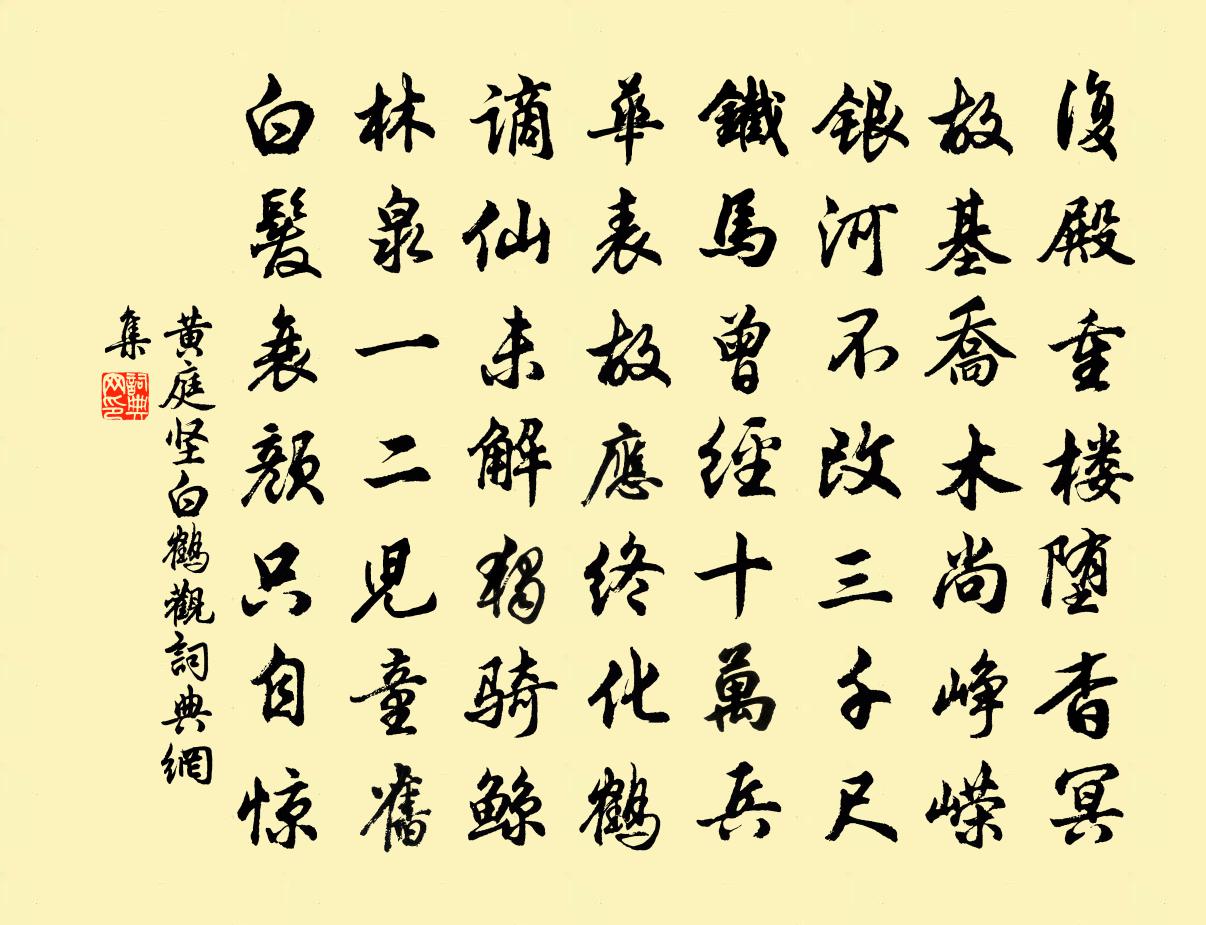 復殿重楼堕杳冥
故基喬木尚峥嵘
銀河不改三千尺
鐵馬曾經十萬兵
華表故應終化鶴
謫仙未解獨騎鯨
林泉一二兒童舊
白髮衰顏只自惊
黄庭坚白鶴觀詞典網
集
詞典
网印